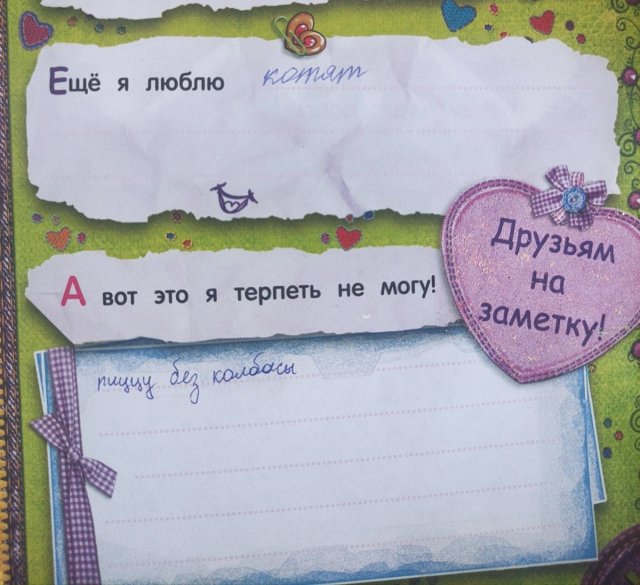 Ещё я люблю котят
А вот это я терпеть не могу!
Друзьям
на
заметку!
пиццу без колбасы